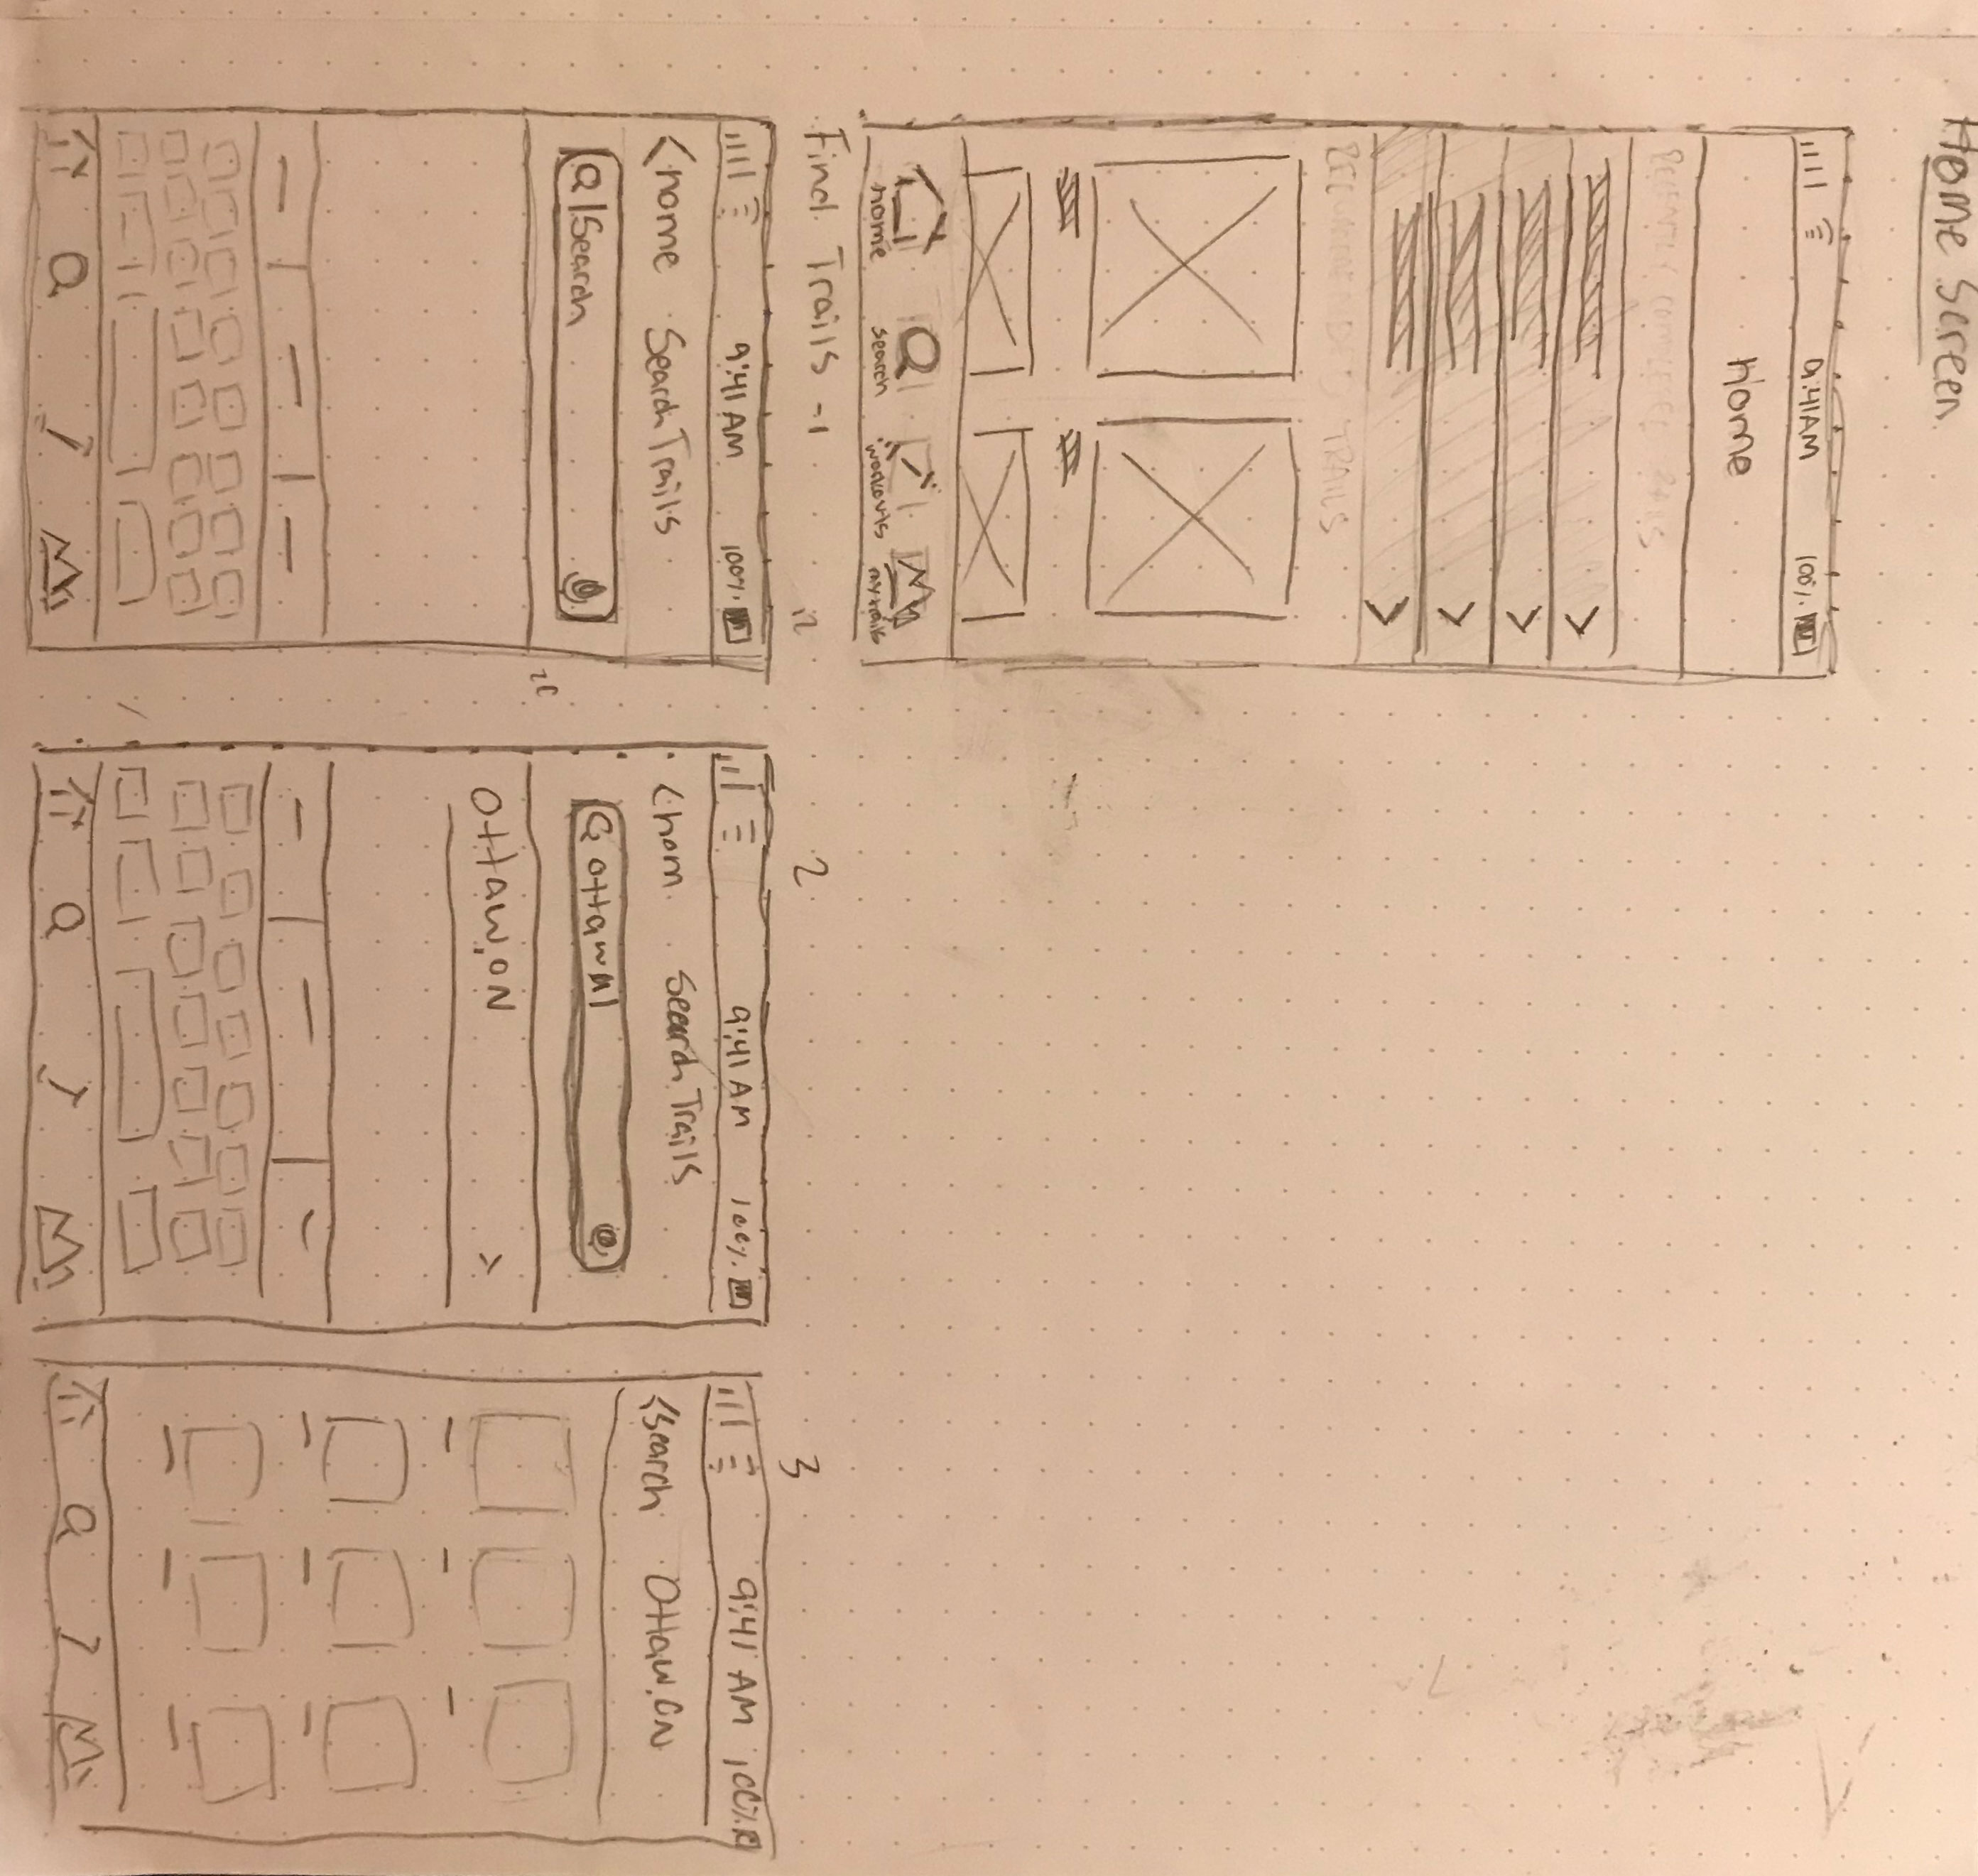 Home Screen
9:41AM 100%
Home
RECENTLY COMPLETE
TRAILS
home search workouts my trails
Find Trails -1
9:41 AM 100%
<home Search Trails
Search
2
9:41 AM 100%
<hom Search Trails
Ottaw
Ottaw,ON >
3
9:41 AM 100%
<Search Ottaw,ON